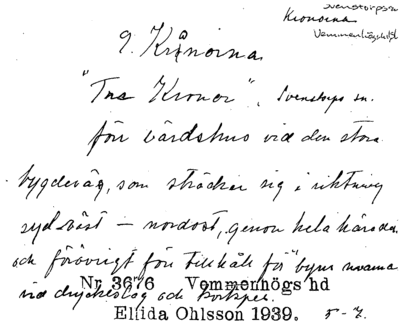 Svenstorps sn
Kronorna
Vemmenhögs hd
9. Kronorna
"Tre Kronor", Svenstorps sn.
förr värdshus vid den stora
bygdeväg, som sträcker sig i riktning
sydväst – nordost, genom hela häradet
och förövrigt förr tillhåll för byns
vid dryckeslag och kortspel.
Nr 3676 Vemmenhögs hd
Elfida Ohlsson 1939.